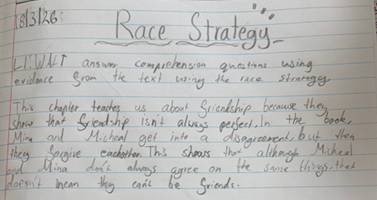 18/3/26:
Race Strategy
L.I: WALT answer comprehension questions using
evidence from the text using the race strategy
This chapter teaches us about friendship because they
show that friendship isn't always perfect. In the book,
Mina and Micheal get into a disagreement but then
they forgive eachother. This shows that although Micheal
and Mina don't always agree on the same things, that
doesn't mean they can't be friends.